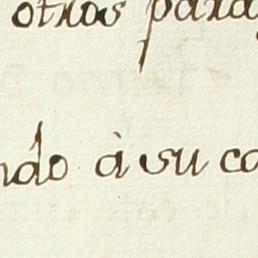 otros para
ndo à su co